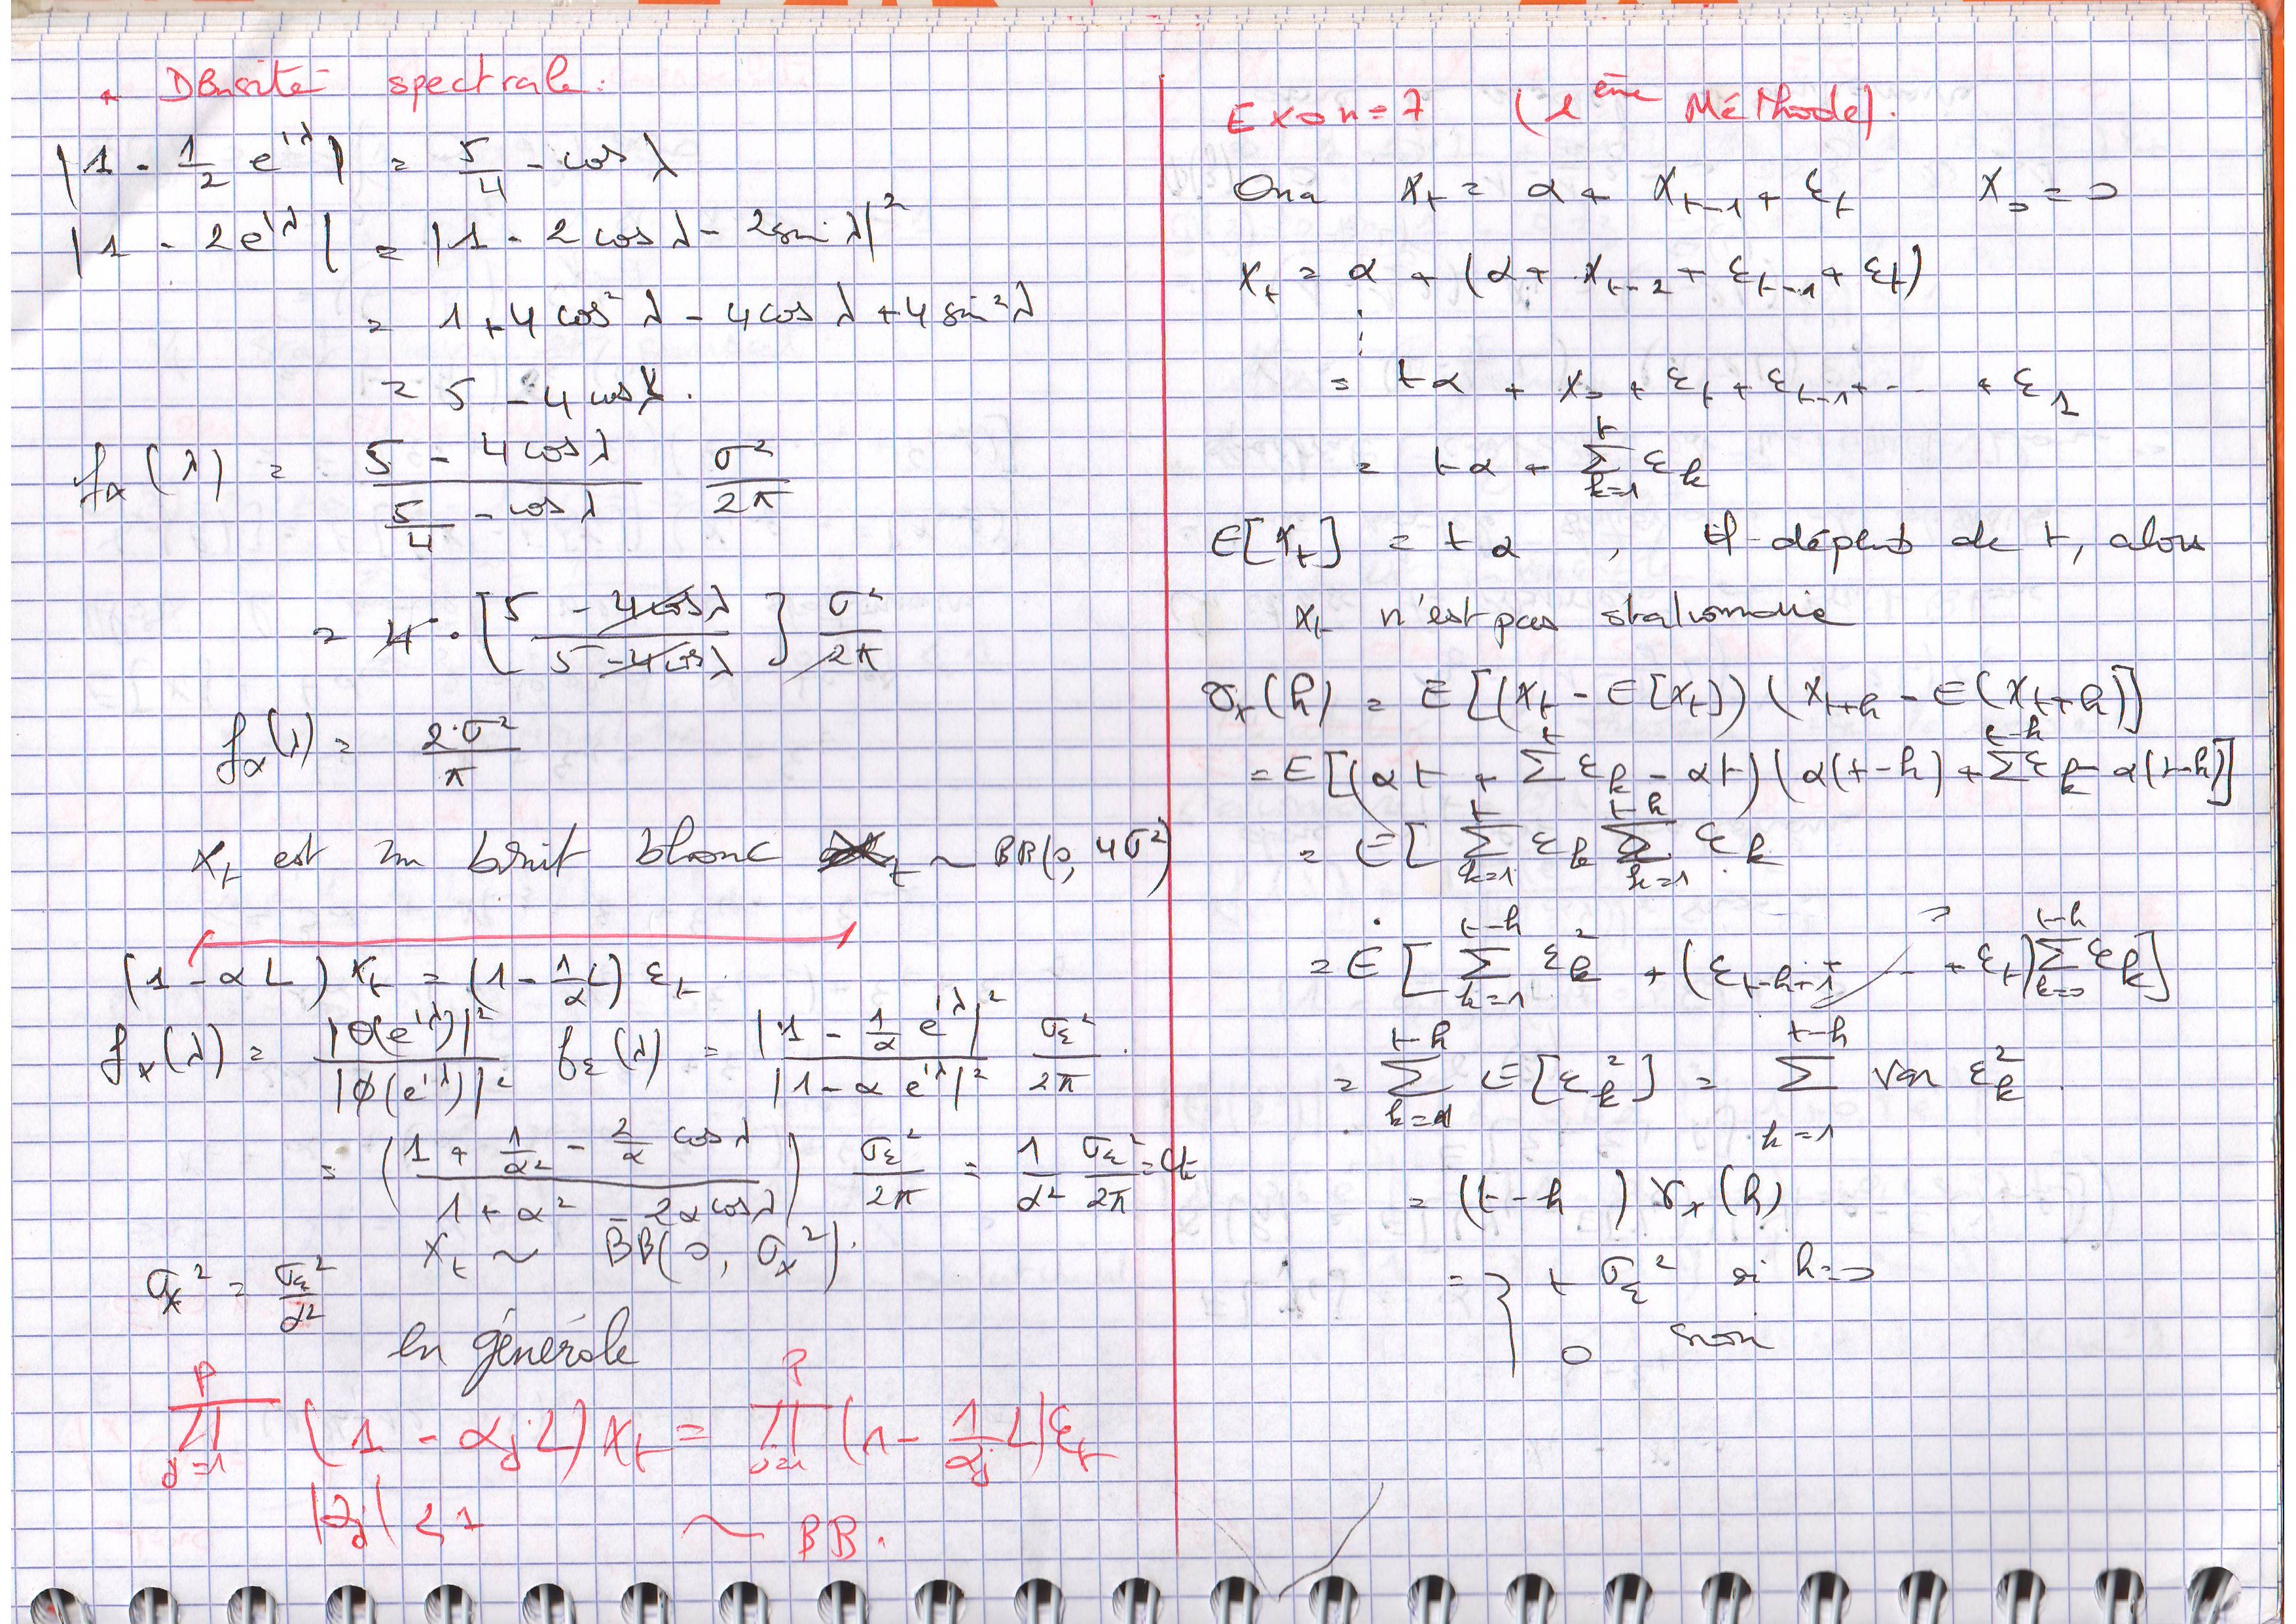 * Densité spectrale:
|1 - 1/2 e^{iλ}| = 5/4 - cos λ
|1 - 2e^{iλ}| = |1 - 2cos λ - 2sin λ|²
= 1 + 4cos² λ - 4cos λ + 4 sin² λ
= 5 - 4 cos λ.
f_x(λ) = (5 - 4cos λ)/(5/4 - cos λ) σ²/2π
= 4 · [(5 - 4cos λ)/(5 - 4cos λ)] σ²/2π
f_x(λ) = 2·σ²/π
X_t est un bruit blanc ~ BB(0, 4σ²)
(1 - αL) X_t = (1 - 1/α L) ε_t
f_x(λ) = |θ(e^{iλ})|²/|ϕ(e^{iλ})|² f_ε(λ) = |1 - 1/α e^{iλ}|²/|1 - α e^{iλ}|² σ_ε²/2π.
= ((1 + 1/α² - 2/α cos λ)/(1 + α² - 2α cos λ)) σ_ε²/2π = 1/α² σ_ε²/2π = cte
X_t ~ BB(0, σ_x²).
σ_x² = σ_ε²/α²
En générale
∏_{j=1}^{P} (1 - α_j L) X_t = ∏_{j=1}^{P} (1 - 1/α_j L) ε_t
|α_j| < 1 ~ BB.
Exo n=7 (1ème Méthode).
On a X_t = α + X_{t-1} + ε_t X_0 = 0
X_t = α + (α + X_{t-2} + ε_{t-1} + ε_t)
⋮
= tα + X_0 + ε_t + ε_{t-1} + ... + ε_1
= tα + Σ_{k=1}^{t} ε_k
E[X_t] = tα , il dépend de t, alors
X_t n'est pas stationnaire
γ_x(h) = E[(X_t - E[X_t]) (X_{t+h} - E(X_{t+h})]
= E[(αt + Σ^{t} ε_k - αt) (α(t-h) + Σ^{t-h} ε_k - α(t-h)]
= E[Σ_{k=1}^{t} ε_k Σ_{k=1}^{t-h} ε_k
= E[Σ_{k=1}^{t-h} ε_k² + (ε_{t-h+1} ... + ε_t) Σ_{k=0}^{t-h} ε_k]
= Σ_{k=1}^{t-h} E[ε_k²] = Σ_{k=1}^{t-h} Var ε_k²
= (t-h) γ_x(h)
= { t σ_ε² si h=0
0 sinon